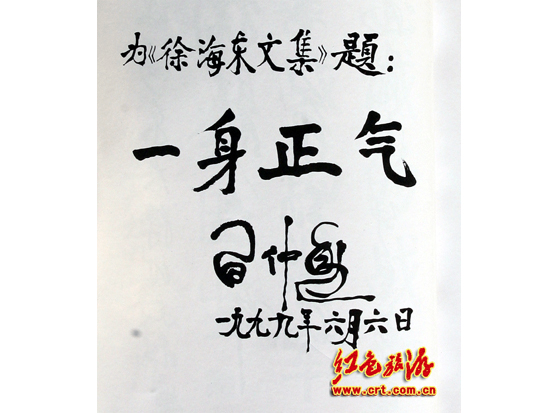 为《徐海东文集》题：
一身正气
习仲勋
一九九九年六月六日
红色旅游
www.crt.com.cn